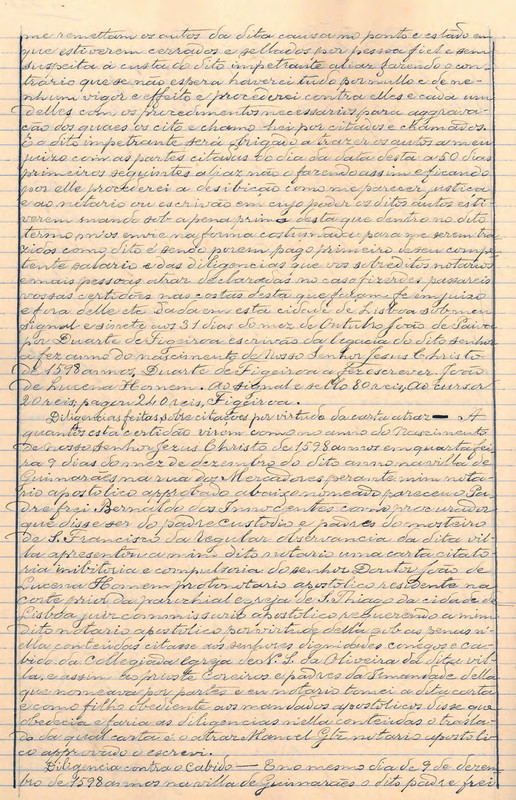 me remettam os autos da dita causa no ponto e estado em
que estiverem cerrados e sellados por pessoa fiel e sem
suspeita á custa do dito impetrante aliaz fazendo o con-
trário que se não espera haverei tudo por nullo e de ne-
nhum vigor e effeito e procederei contra elles e cada um
delles com os procedimentos necessarios para aggrava-
ção dos quaes os cito e chamo hei por citados e chamados.
E o dito impetrante será obrigado a trazer os autos a meu
juizo com as partes citadas do dia da data desta a 50 dias
primeiros seguintes aliaz não o fazendo assim e ficando
por elle procederei a desibição como me parecer justiça
e ao notario ou escrivão em cujo poder os ditos autos esti-
verem mando sob a pena prima desta que dentro no dito
termo m'os envie na forma costumada para me serem tra-
zidos como dito é sendo porem pago primeiro de seu compe-
tente salario e das diligencias que vos sobreditos notarios
e mais pessoas atraz declaradas no caso fizerdes passareis
vossas certidões nas costas desta que façam fé em juizo
e fora delle etc. Dada em esta cidade de Lisboa sob meu
signal e sinete aos 31 dias do mez de Outubro João de Paiva
por Duarte de Figueiroa escrivão da legacia do dito senhor
a fez anno do nascimento de Nosso Senhor Jesus Christo
de 1598 annos, Duarte de Figueiroa a fez escrever. João
de Lucena Homem. Ao signal e sello 80 reis, Ao cursor
20 reis, pagou 240 reis, Figeiroa.
Diligencias feitas sobre citações por virtude da carta atraz — A
quantos esta certidão virem como no anno do Nascimento
de nosso senhor Jezus Christo de 1598 annos em quarta fei
ra 9 dias do mez de dezembro do dito anno na villa de
Guimarães na rua dos Mercadores perante mim nota-
rio apostolico approbado abaixo nomeado pareceu Pa-
dre frei Bernaldo dos Innocentes como procurador
que disse ser do padre custodio e padres do mosteiro
de S. Francisco da regular observancia da dita vil-
la apresentou a mim dito notario uma carta citato-
ria inibitoria e compulsoria do senhor Doutor João de
Lucena Homem protonotario apostolico residente na
corte prior da parochial egreja de S. Thiago da cidade de
Lisboa juiz commissario apostolico requerendo a mim
dito notario apostolico por virtude della sob as penas n'
ella conteudas citasse aos senhores dignidades conegos e ca-
bido da Collegiada egreja de N. S. da Oliveira da dita vil-
la, e assim ao prioste Coreiros e padres da Irmandade della
que nomeava por partes e eu notario tomei a dita carta
e como filho obediente aos mandados apostolicos disse que
obedecia e faria as diligencias n'ella conteudas o trasla-
do da qual carta é o atraz Manuel Glz notario apostoli-
co approvado o escrevi.
Diligencia contra o Cabido — E no mesmo dia de 9 de dezem-
bro de 1598 annos na villa de Guimarães o dito padre frei